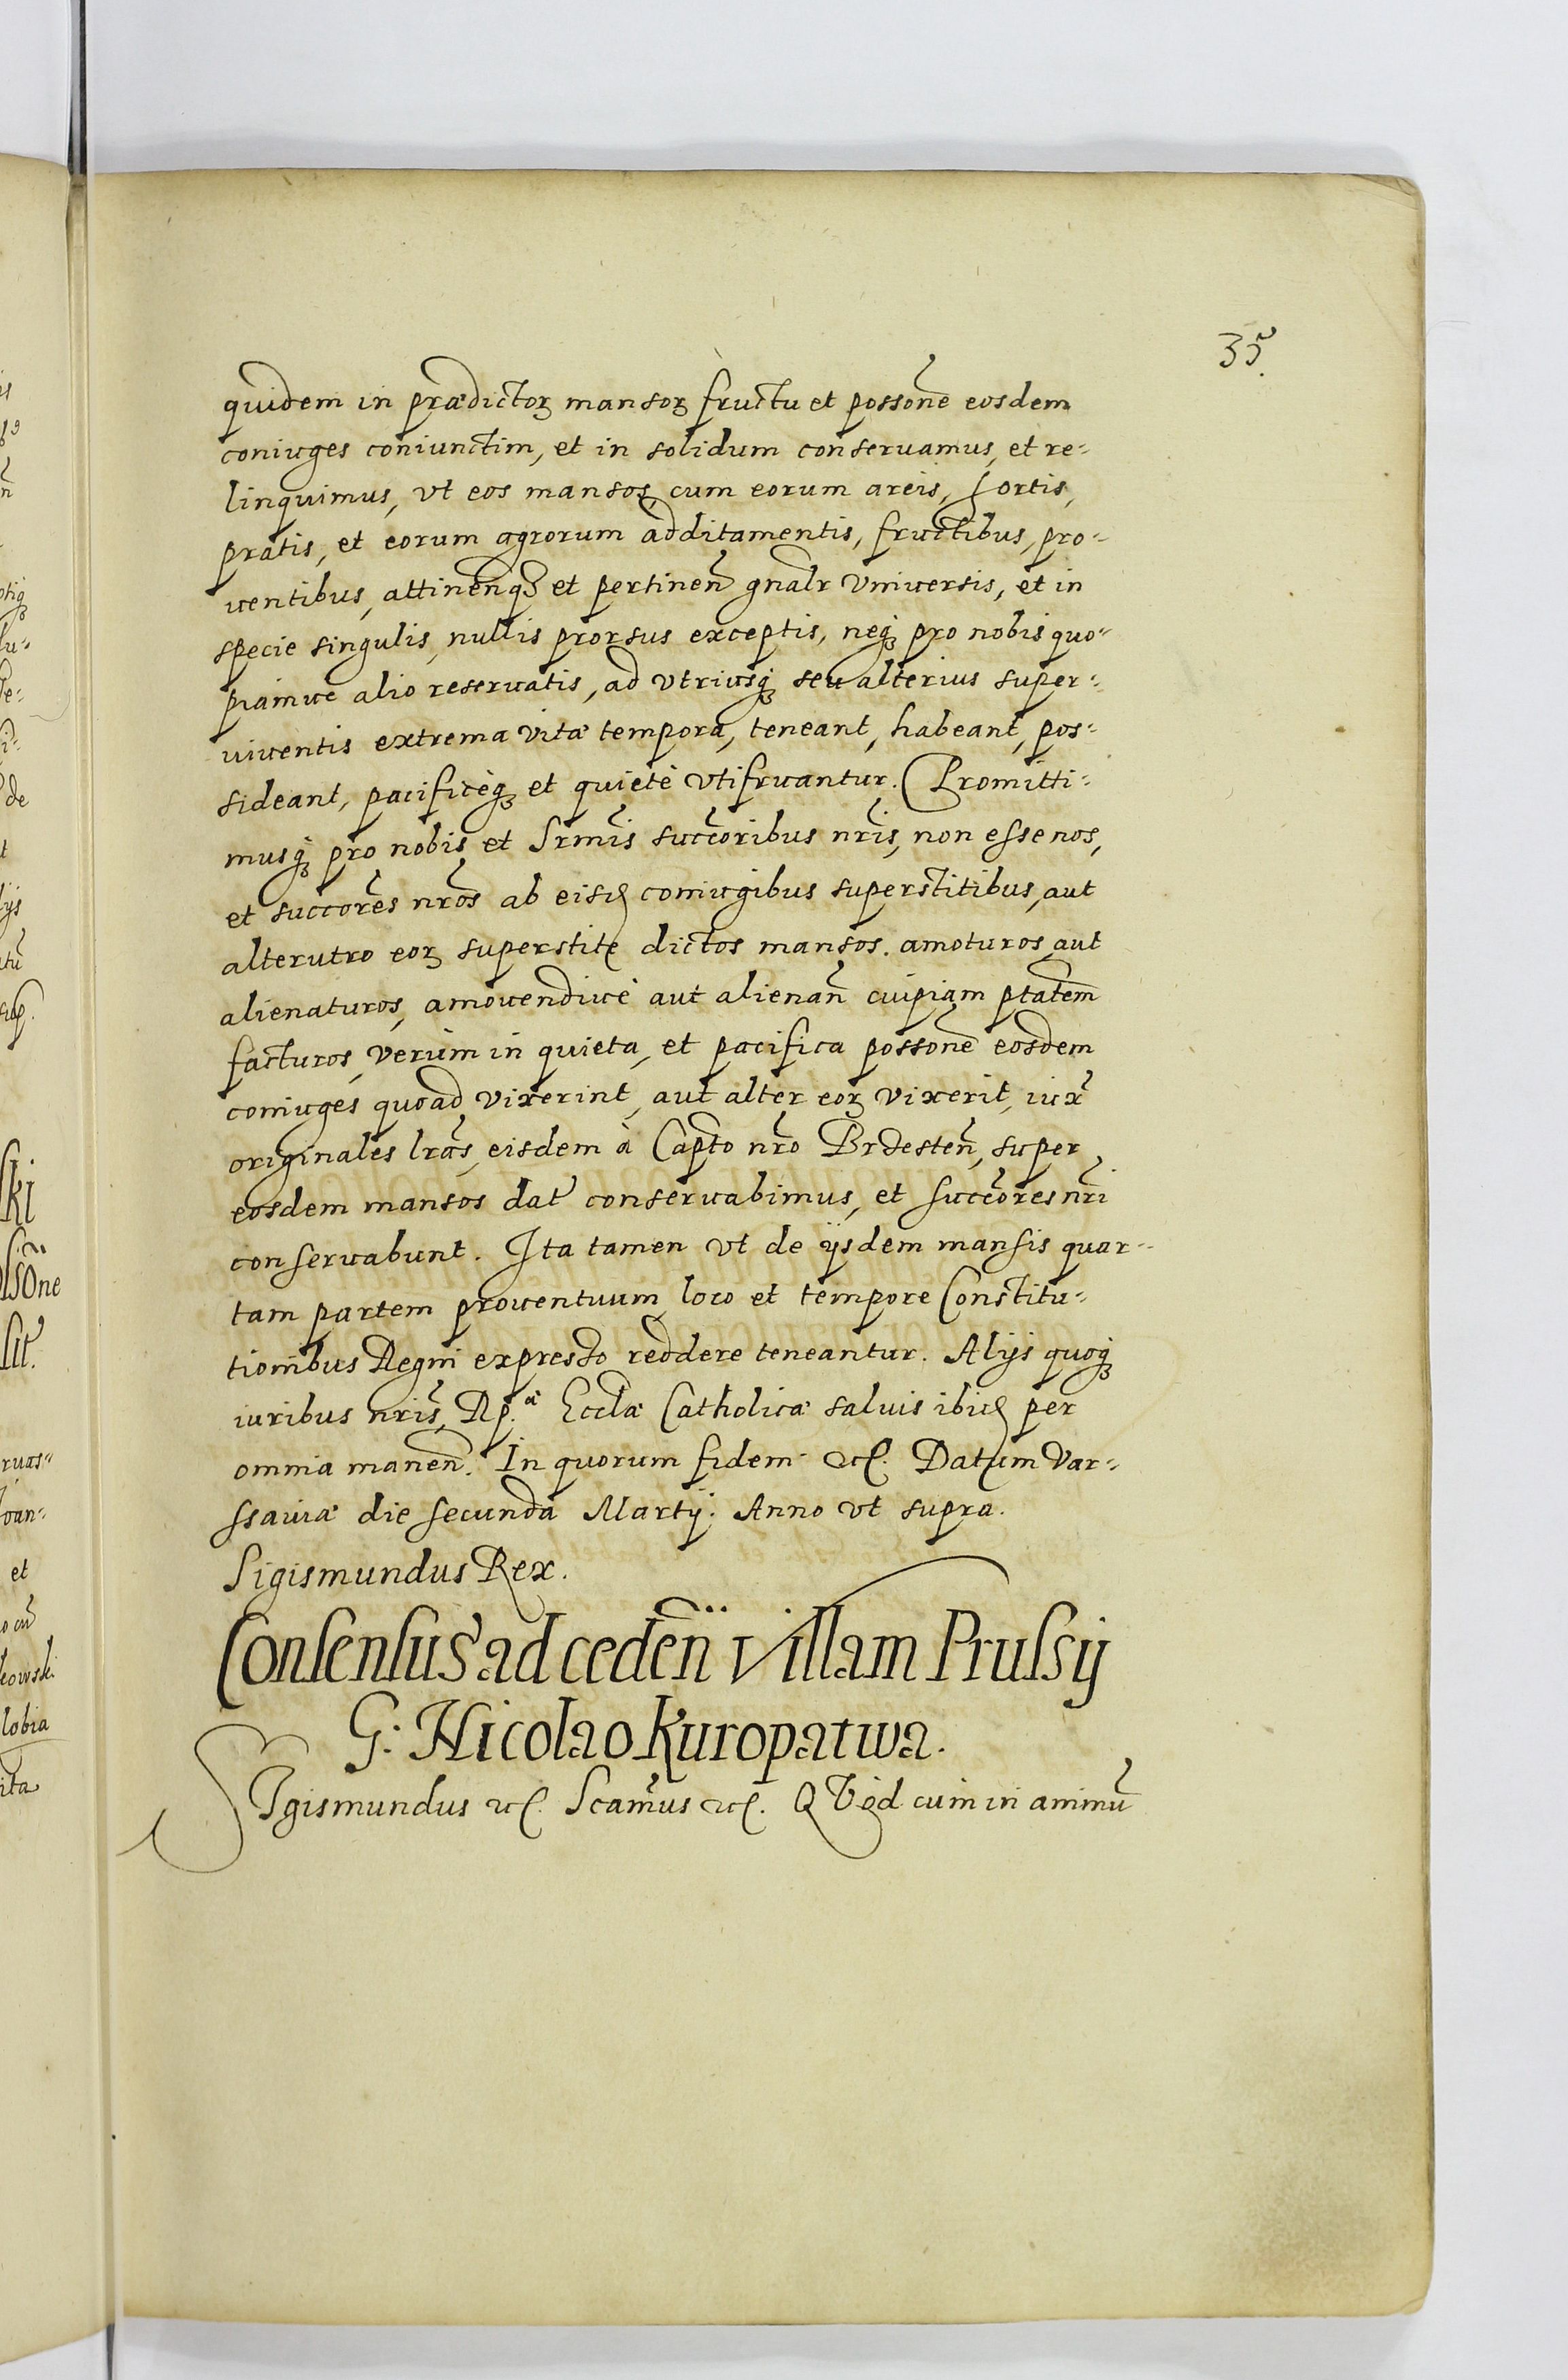 35.
quidem in prædictoꝝ mansoꝝ fructu et possonẽ eosdem
coniuges coniunctim, et in solidum conseruamus, et re-
linquimus, vt eos mansos, cum eorum areis, hortis,
pratis, et eorum agrorum additamentis, fructibus, pro-
uentibus, attinenq̃ et pertineñ gnalr vniuersis, et in
specie singulis, nullis prorsus exceptis, neqꝫ pro nobis quo-
piamue alio reseruatis, ad vtriusqꝫ seu alterius super-
uiuentis extrema vitæ tempora, teneant, habeant, pos-
sideant, pacificèqꝫ et quietè vtifruantur. Promitti-
musqꝫ pro nobis et Srmĩs succoribus nrĩs, non esse nos,
et succorẽs nrõs ab eisđ coniugibus superstitibus, aut
alterutro eoꝝ superstite dictos mansos amoturos, aut
alienaturos, amouendiue aut alienañ cuipiam ptatẽm
facturos, verùm in quieta, et pacifica possonẽ eosdem
coniuges quoad vixerint, aut alter eoꝝ vixerit, iux̃
originales lrãs, eisdem à Capto nrõ Brdesteñ, super
eosdem mansos dat̃ conseruabimus, et succorẽs nrĩ
conseruabunt. Ita tamen vt de ijsdem mansis quar-
tam partem prouentuum, loco et tempore Constitu-
tionibus Regni expresso reddere teneantur. Alijs quoqꝫ
iuribus nrĩs, Rp.æ Ecclæ Catholicæ saluis ibiđ per
omnia maneñ. In quorum fidem etc. Datum Var-
ssauiæ die secunda Martij. Anno vt supra.
Sigismundus Rex.
Consensus ad cedeñ Villam Prussij
G: Nicolao Kuropatwa.
SIgismundus etc. Scamũs etc. QVod cum in animũ